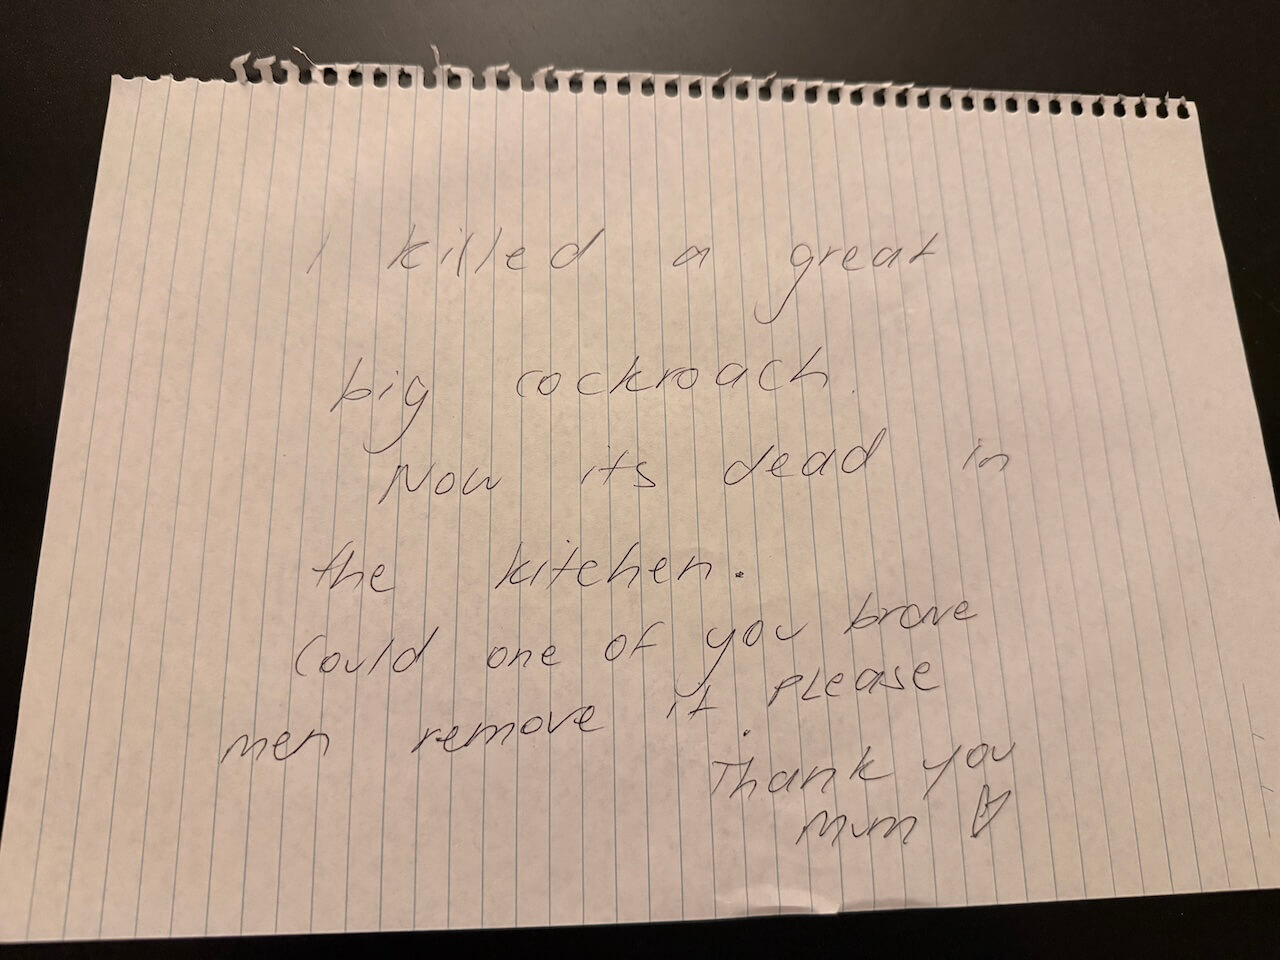 I killed a great
big cockroach.
Now its dead in
the kitchen.
Could one of you brave
men remove it. PLEASE
Thank you
Mum